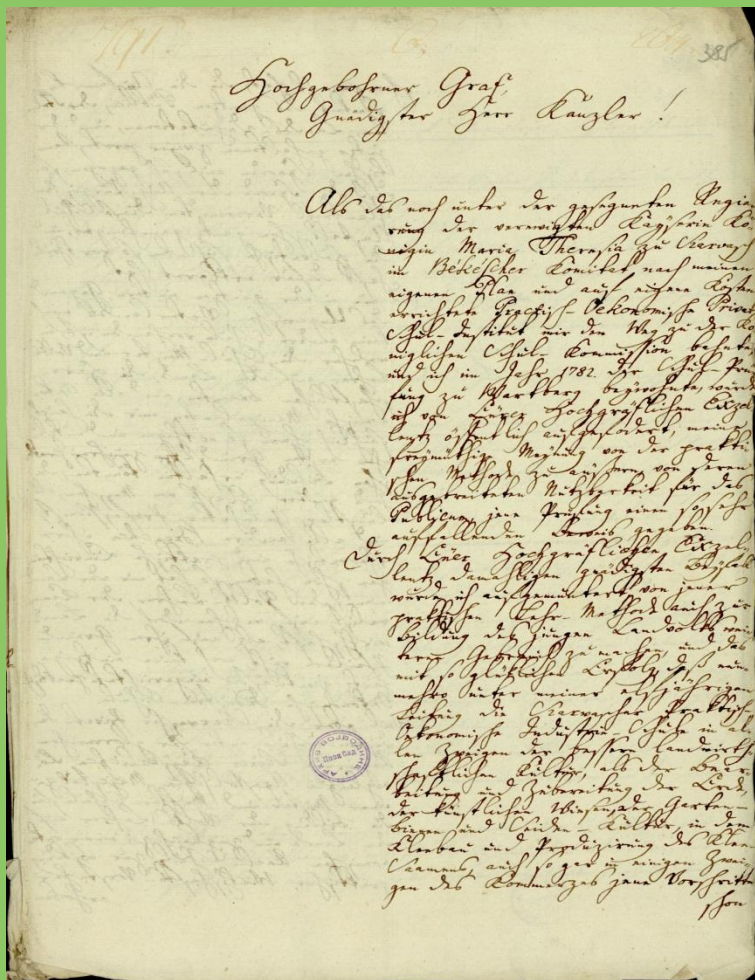 385
Hochgebohrner Graf,
Gnädigster Herr Kanzler!
Als das noch unter der gesegneten Regie-
rung der verewigten Kayserin Kö-
nigin Maria Theresia zu Sarvasch
im Békéscher Komitat nach meinen
eigenen Plan und auf eigene Kosten
errichtete Practisch-Oekonomische Privat
Schul-Institut mir den Weg zu der Kö-
niglichen Schul-Kommission bahnte,
und ich im Jahr 1782. der Schul-Prü-
fung zu Wartberg beywohnte, wurde
ich von Eürer Hochgräflichen Exzel-
lentz öffentlich aufgefodert, meine
freymüthige Meynung von der prakti-
schen Methode zu äüßern, von deren
ausgebreiteten Nutzbarkeit für das
Publicum jene Prüfung einen so sehr
auffallenden Beweis gegeben.
Durch Eürer Hochgräflichen Exzel-
lentz damahligen gnädigsten Beyfall
wurde ich aufgemuntert, von jener
praktischen Lehr-Methode auch zur
Bildung des jungen Landvolks wei-
tern Gebrauch zu machen, und das
mit so glüklichen Erfolg, daß nun-
mehro unter meiner elfjährigen
Leitung die Sarvascher Praktisch-
Oekonomische Industrie Schule in al-
len Zweigen der bessern landwirth-
schaftlichen Kultur, als der Bear-
beitung und Zubereitung der Erde,
der künstlichen Wiesen, der Garten-
Bienen und Seiden-Kultur, in dem
Kleebau und Produzirung des Klee-
Saamens, auch so gar in einigen Zwei-
gen des Kommerzes jene Vorschritte
schon